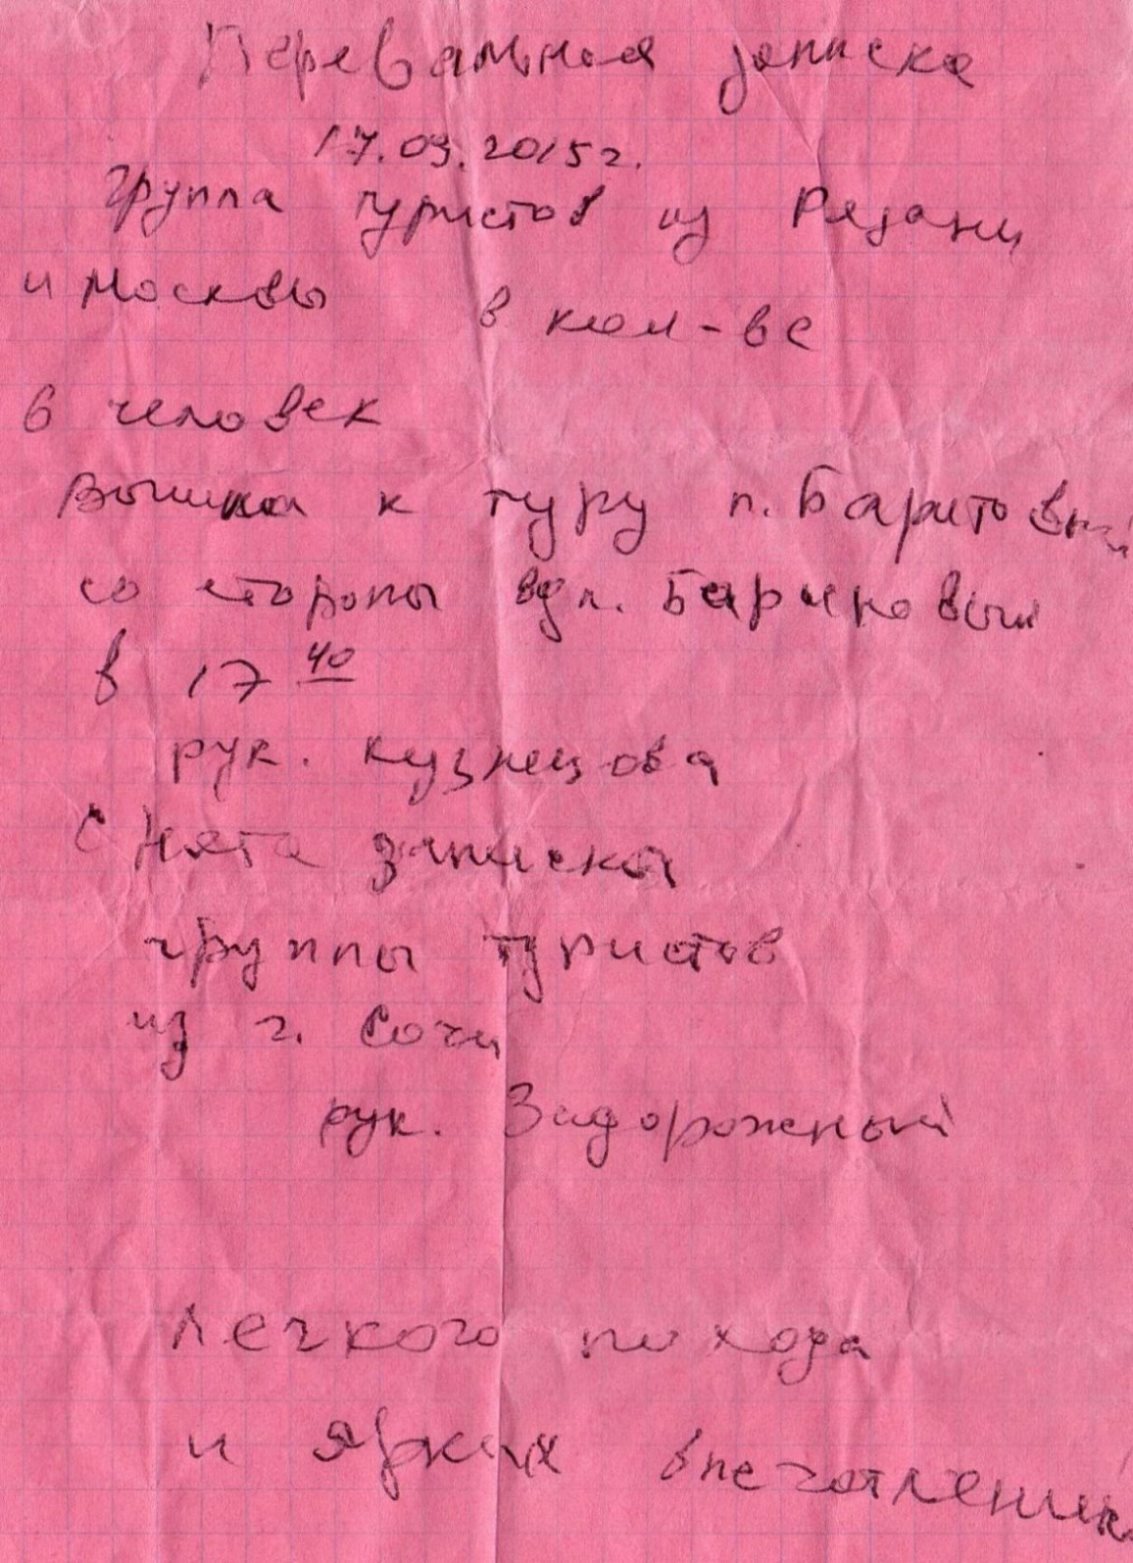 Перевальная записка
17.03.2015г.
Группа туристов из Рязани
и Москвы в кол-ве
6 человек
Вышла к туру п. Баритовый
со стороны вдп. Бариновый
в 17 40
рук. Кузнецова
Снята записка
группы туристов
из г. Сочи
рук. Задорожный
Легкого похода
и ярких впечатлений